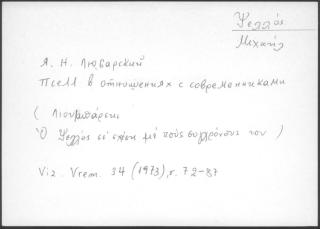 Ψελλός
Μιχαήλ
Я. Н. Любарский
Пселл в отношениях с современниками
( Λιουμπάρσκι
Ὁ Ψελλός σέ σχέση μέ τούς συγχρόνους του )
Viz. Vrem. 34 (1973), σ. 72-87